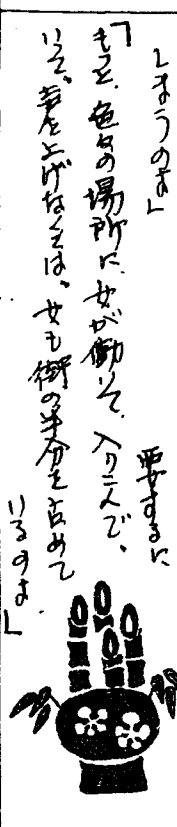 しまうのよ」　要するに
「もっと、色々の場所に、女が働いて、入りこんで、
いって、声を上げなくては。女も街の半分を占めて
いるのよ。」